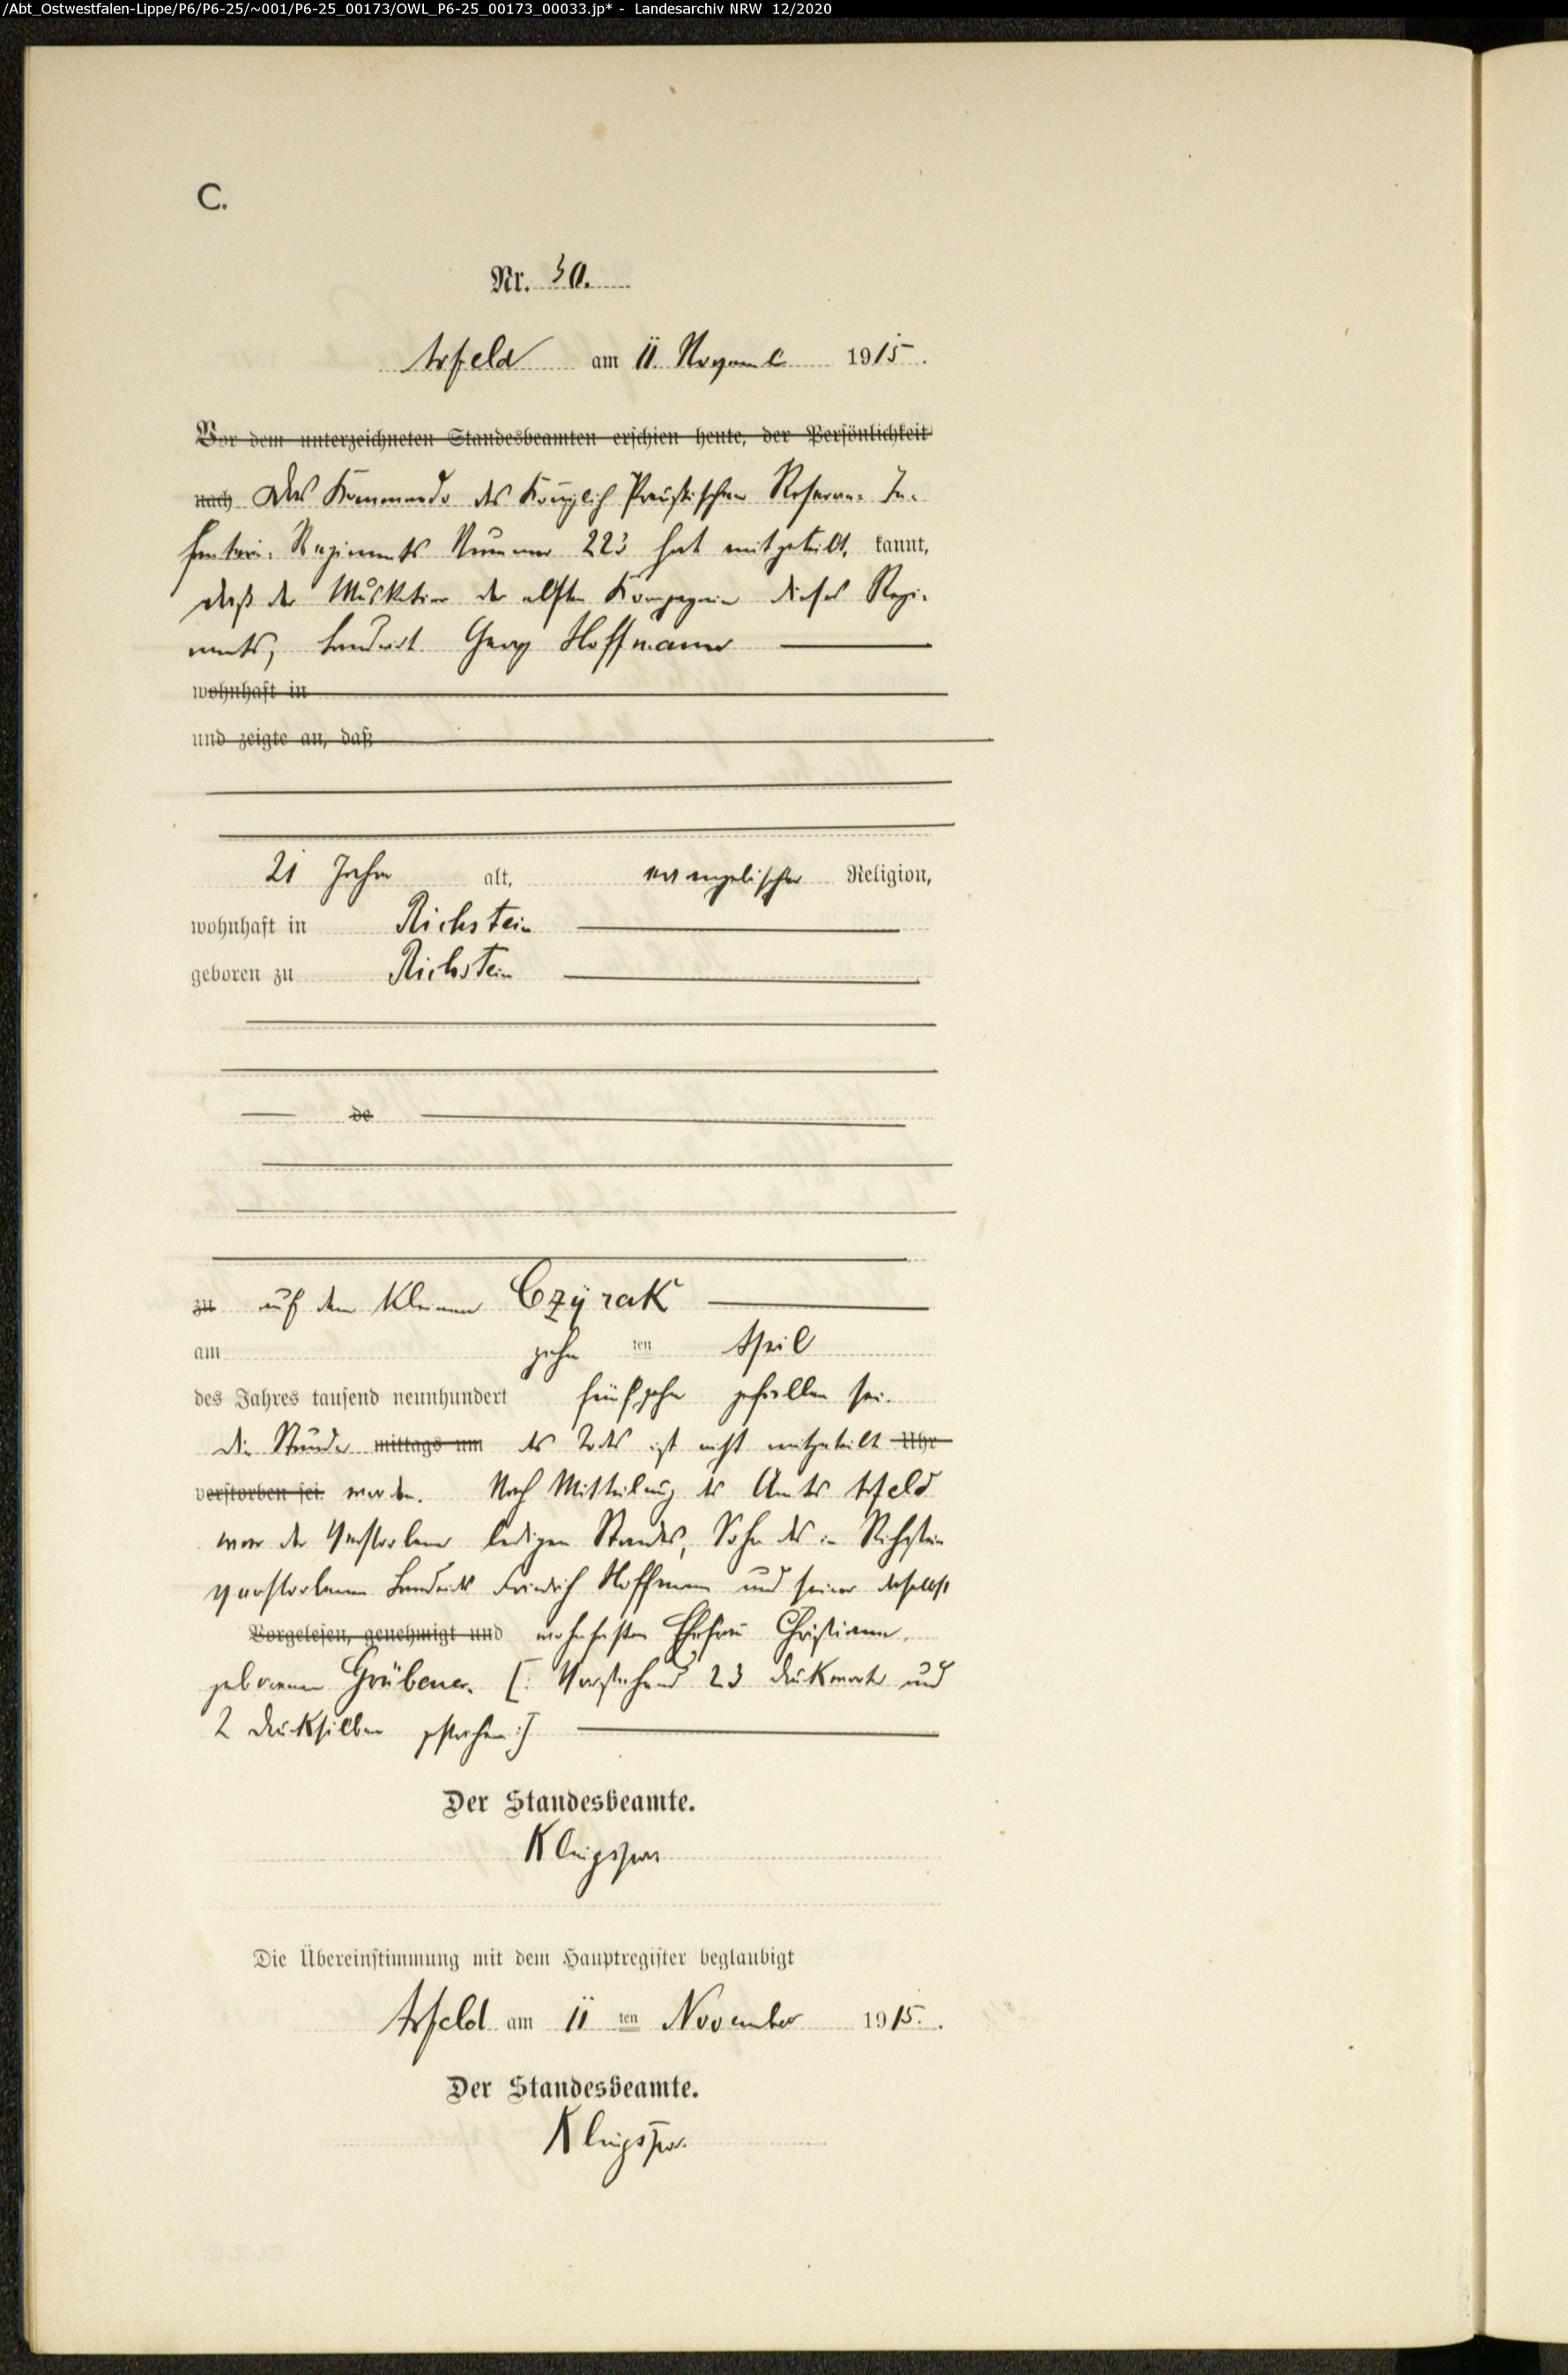 /Abt_Ostwestfalen-Lippe/P6/P6-25/~001/P6-25_00173/OWL_P6-25_00173_00033.jp* - Landesarchiv NRW 12/2020
C.
Nr. 30.
Arfeld am 11. November 1915.
Vor dem unterzeichneten Standesbeamten erschien heute, der Persönlichkeit
nach Das Kommando des Königlich Preußischen Reserve- In-
fanterie-Regiments Nummer 223 hat mitgeteilt, kannt,
daß der Musketier der elften Kompagnie dieses Regi-
ments, Landwirt Georg Hoffmann
wohnhaft in
und zeigte an, daß
21 Jahre alt, evangelischer Religion,
wohnhaft in Richstein
geboren zu Richstein
de
zu auf dem kleinen Czyrak
am zehn ten April
des Jahres tausend neunhundert fünfzehn gefallen sei.
die Stunde mittags um des Todes ist nicht mitgeteilt Uhr
verstorben sei. worden. Nach Mitteilung des Amts Arfeld
war der Verstorbene ledigen Standes, Sohn des in Richstein
verstorbenen Landwirts Friedrich Hoffmann und seiner daselbst
Vorgelesen, genehmigt und wohnhaften Ehefrau Christiane,
geborenen Grübener. [: Vorstehend 23 Druckworte und
2 Drucksilben gestrichen :]
Der Standesbeamte.
Klingspor
Die Übereinstimmung mit dem Hauptregister beglaubigt
Arfeld am 11 ten November 1915.
Der Standesbeamte.
Klingspor.